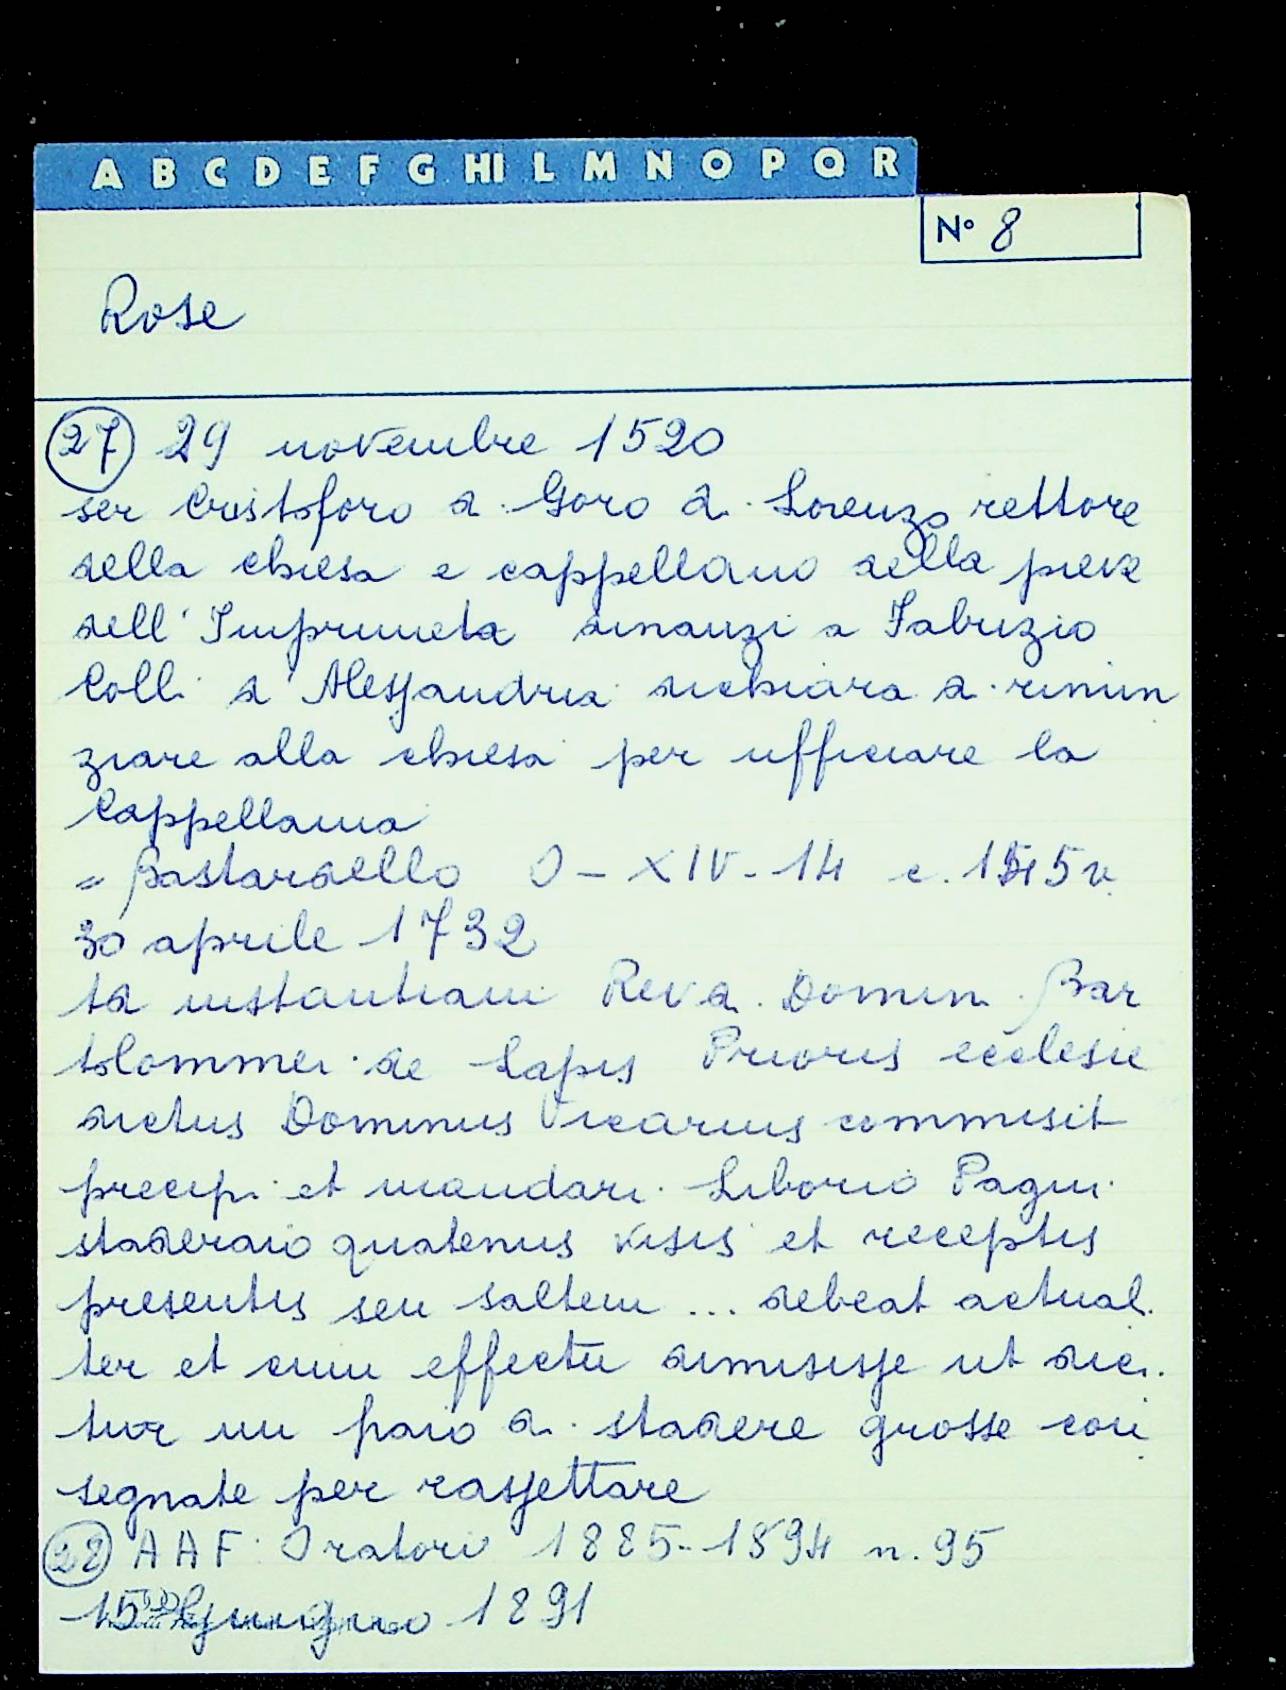 A B C D E F G HI L M N O P Q R
N° 8
Rose
27 29 novembre 1520
ser Cristoforo di Goro di Lorenzo rettore
della chiesa e cappellano della pieve
dell'Impruneta dinanzi a Fabrizio
Colli d'Alessandria dichiara di rinun
ziare alla chiesa per ufficiare la
Cappellania
= Bastardello O - XIV - 14 c. 145v
30 aprile 1732
ta instantiam Rev.d. Domin. Bar
tolommei de Lapis Prioris ecclesie
dictus Dominus Vicarius commisit
precipi et mandari Liborio Pagni
staderaio quatenus visis et receptis
presentis seu saltem ... debeat actual.
ter et cum effectu dimisisse ut dici.
tur un paio di stadere grosse con
segnate per rassettare
28 AAF Oratori 1885-1894 n. 95
15 Giugno 1891